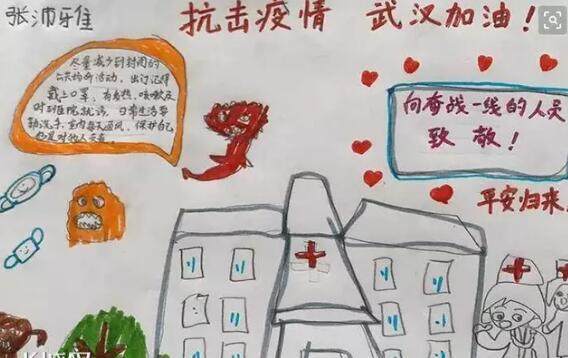 张沛雅
抗击疫情 武汉加油！
尽量减少到封闭的
公共场所活动，出门记得
戴上口罩，有发热、咳嗽及
时到医院就诊，日常生活等
勤洗手，室内每天通风，保护自己
向奋战一线的人员
致敬！
平安归来